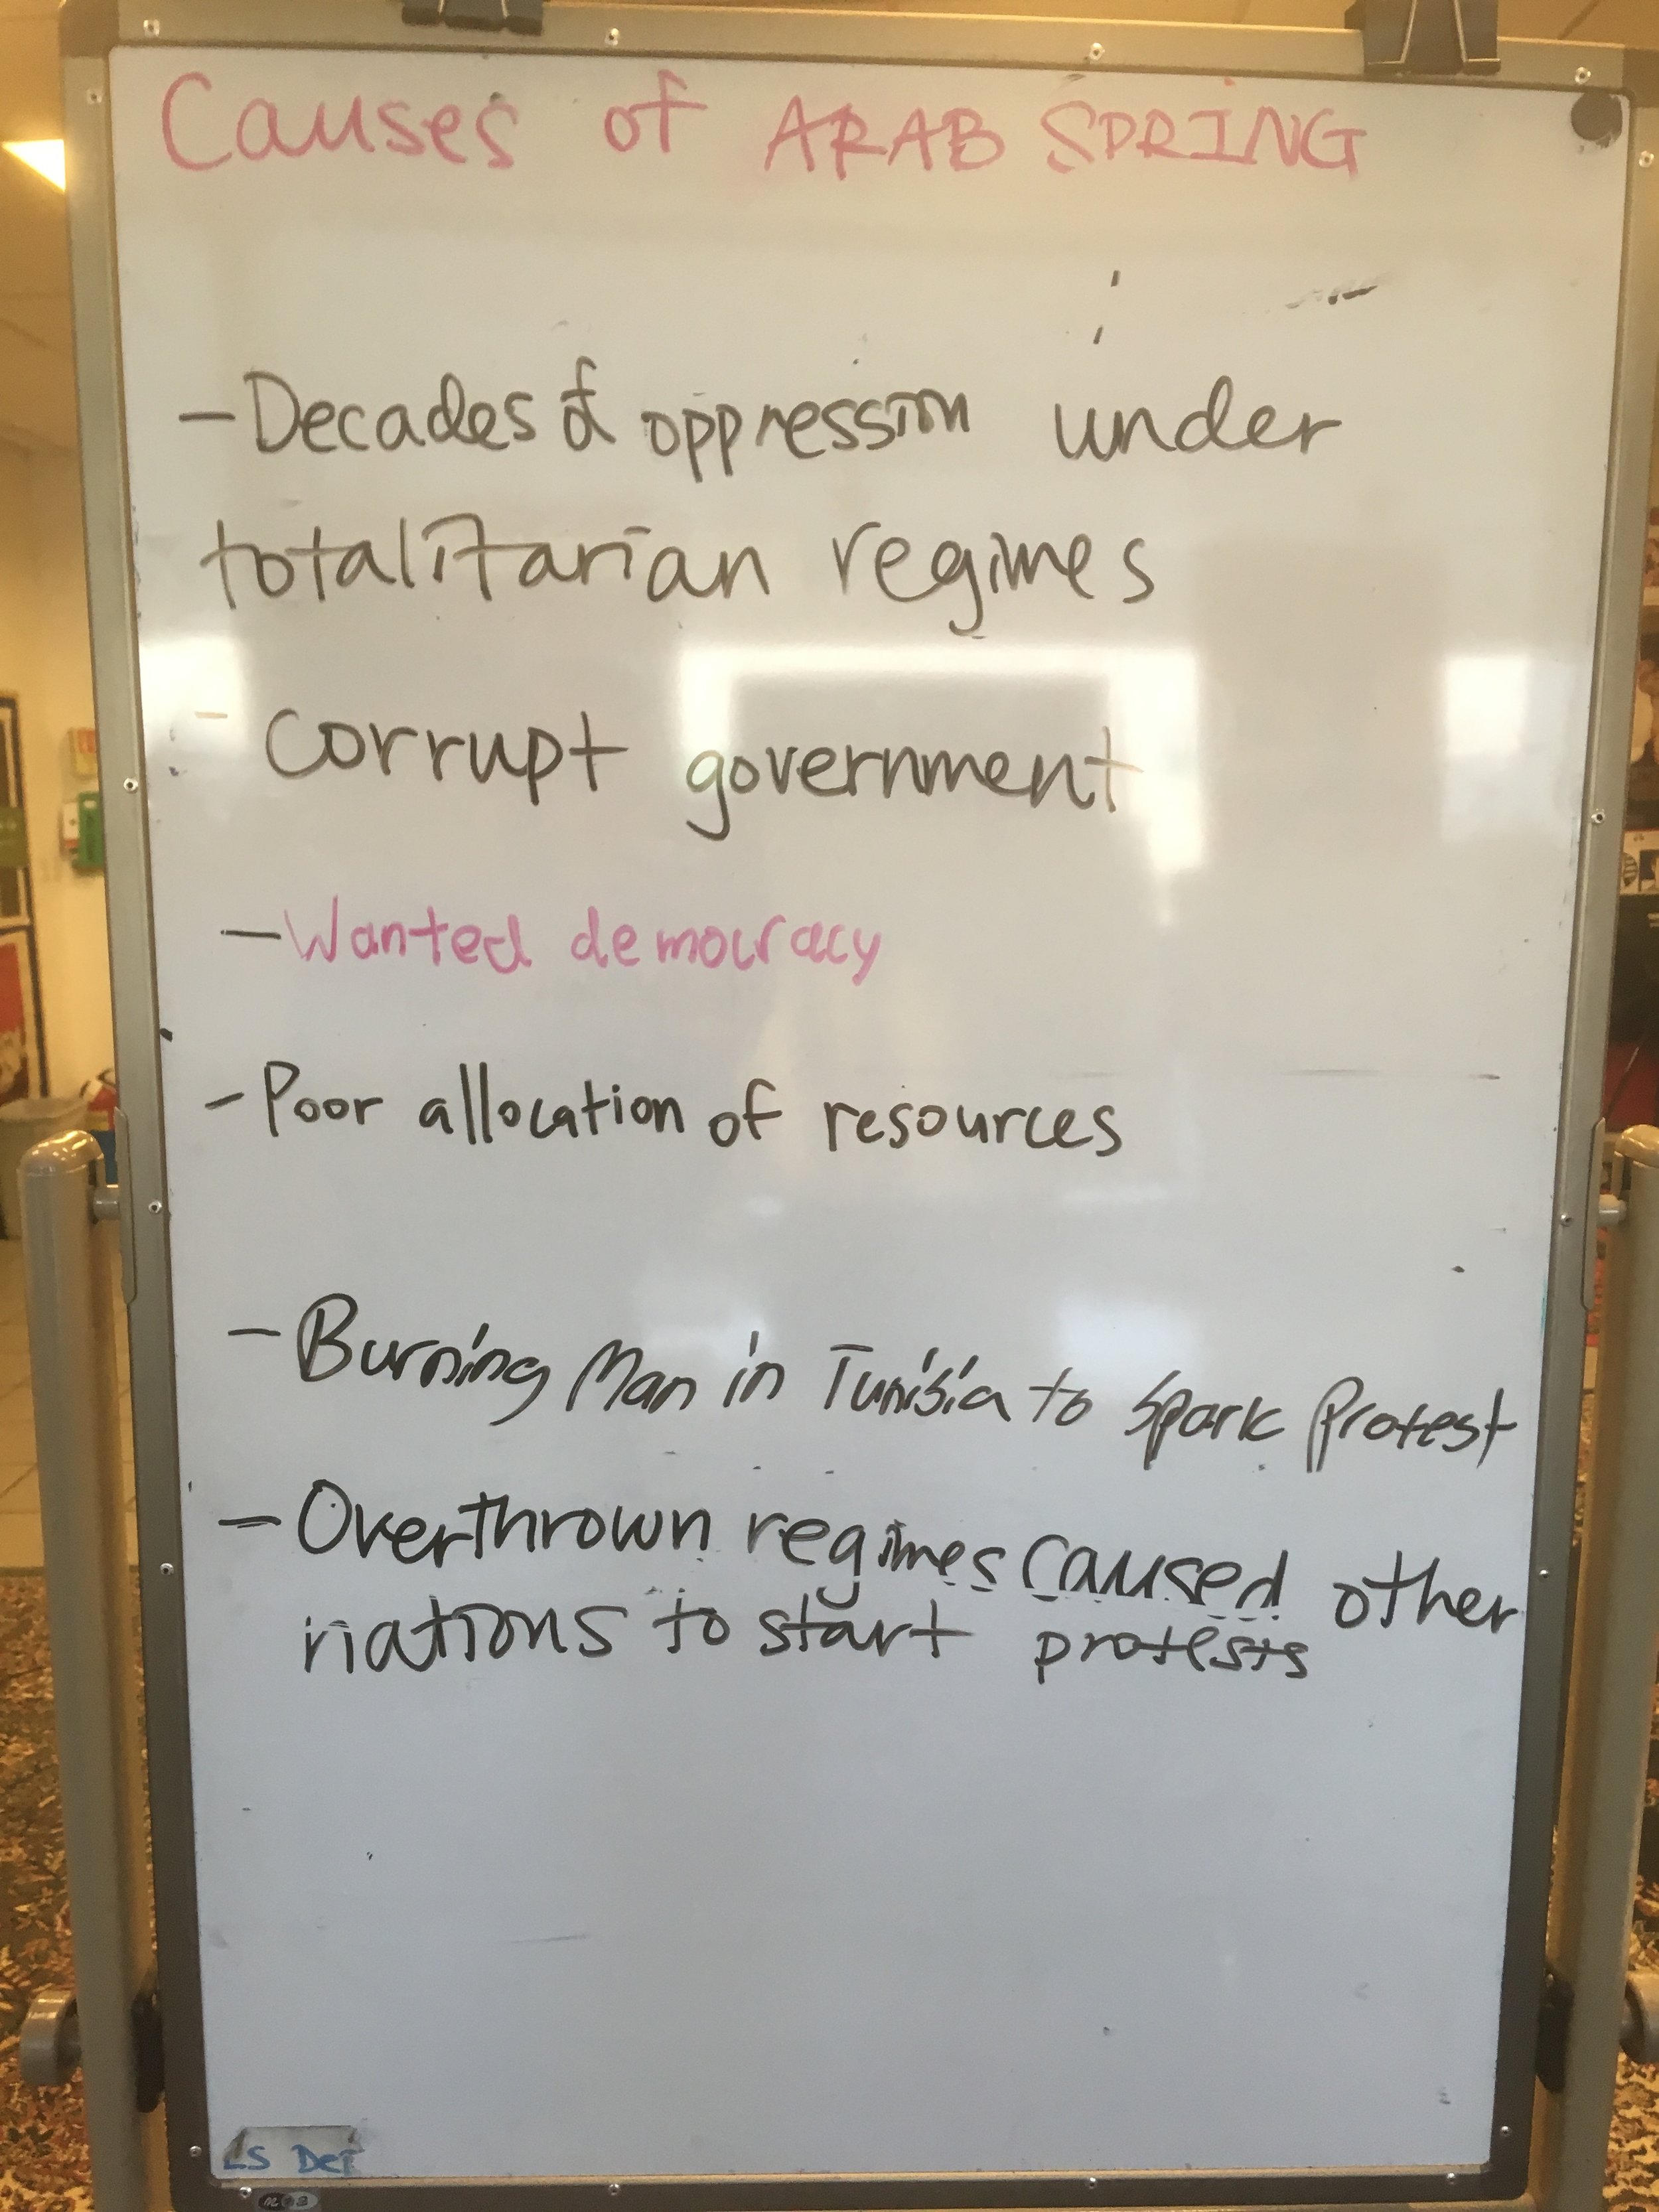 Causes of ARAB SPRING
- Decades of oppression under
totalitarian regimes
- Corrupt government
- Wanted democracy
- Poor allocation of resources
- Burning Man in Tunisia to Spark Protest
- Overthrown regimes caused other
nations to start protests
LS Dept